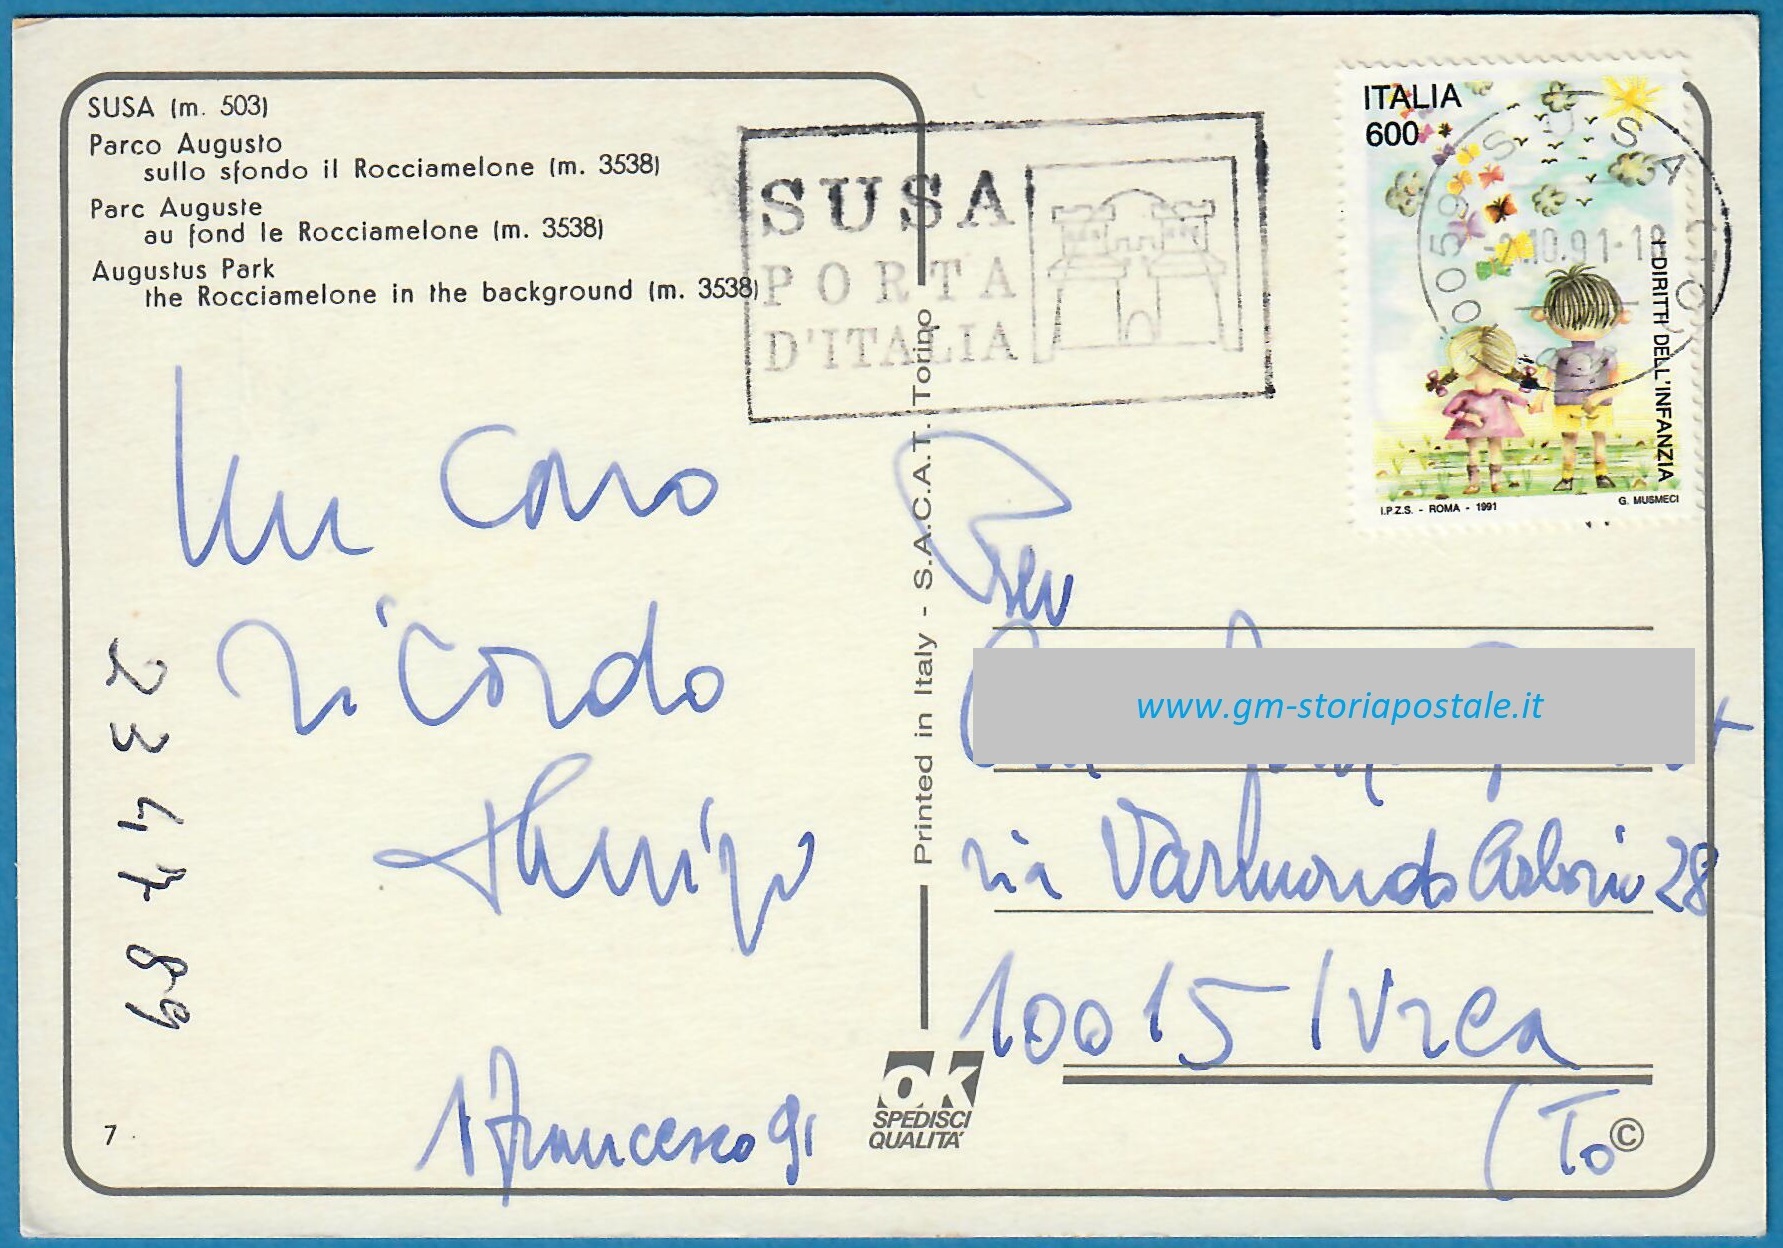 SUSA (m. 503)
Parco Augusto
sullo sfondo il Rocciamelone (m. 3538)
Parc Auguste
au fond le Rocciamelone (m. 3538)
Augustus Park
the Rocciamelone in the background (m. 3538)
SUSA
PORTA
D'ITALIA
ITALIA
600
I DIRITTI DELL'INFANZIA
I.P.Z.S. - ROMA - 1991
G. MUSMECI
SUSA
10059
-2.10.91-18
Un caro
ricordo
S Francesco 91
23 47 89
Printed in Italy - S.A.C.A.T. Torino
www.gm-storiapostale.it
via Varmondo Arborio 28
10015 Ivrea
(To
OK
SPEDISCI
QUALITA'
7
©